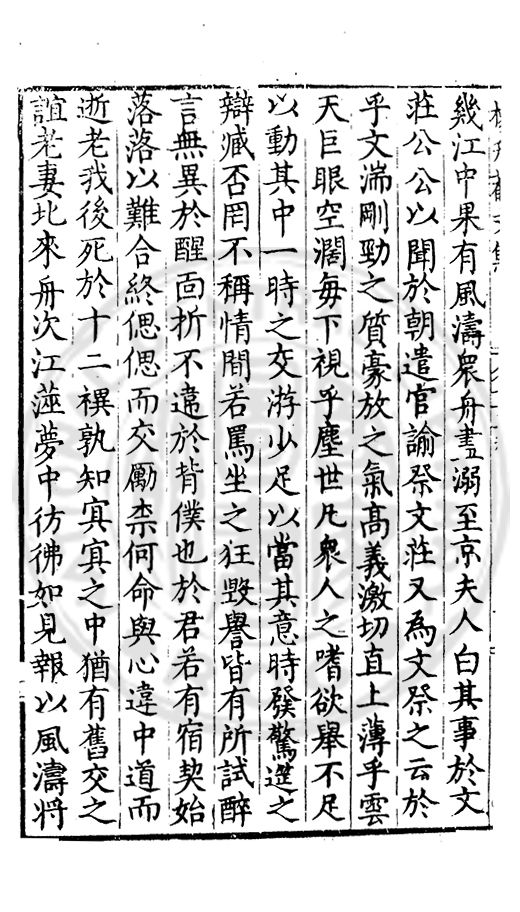 幾江中果有風濤衆舟盡溺至京夫人白其事於文
莊公公以聞於朝遣官諭祭文莊又為文祭之云於
乎文湍剛勁之質豪放之氣高義激切直上薄乎雲
天巨眼空濶每下視乎塵世凡衆人之嗜欲舉不足
以動其中一時之交游少足以當其意時發驚選之
辯臧否罔不稱情間若罵坐之狂毀譽皆有所試醉
言無異於醒面折不違於背僕也於君若有宿契始
落落以難合終偲偲而交勵柰何命與心違中道而
逝老我後死於十二禩孰知冥冥之中猶有舊交之
誼老妻北來舟次江滋夢中彷彿如見報以風濤將